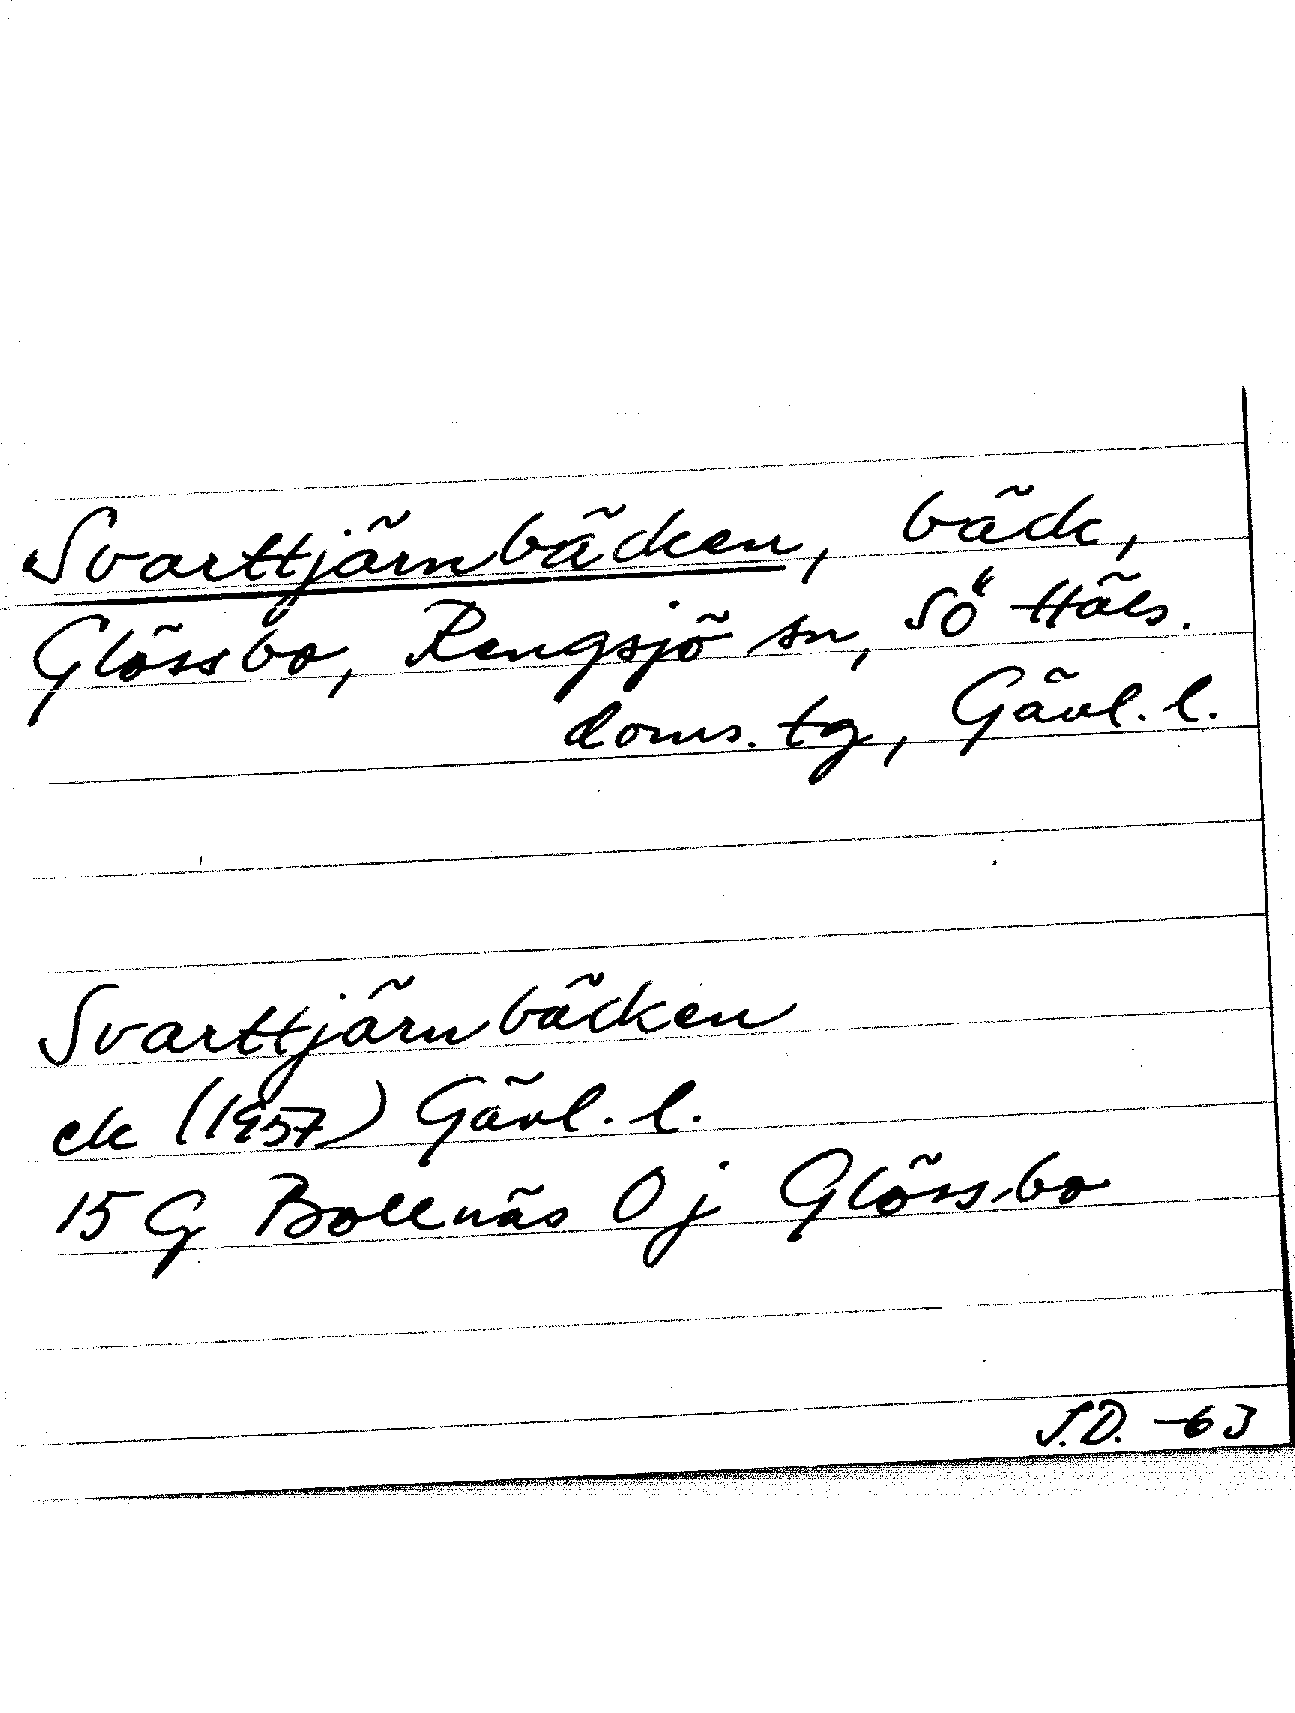 Svarttjärnbäcken, bäck,
Glössbo, Rengsjö sn, Sö Häls.
doms. tg, Gävl. l.
Svarttjärnbäcken
ek (1957) Gävl. l.
15 G Bollnäs 0 j Glössbo
S.D. -63